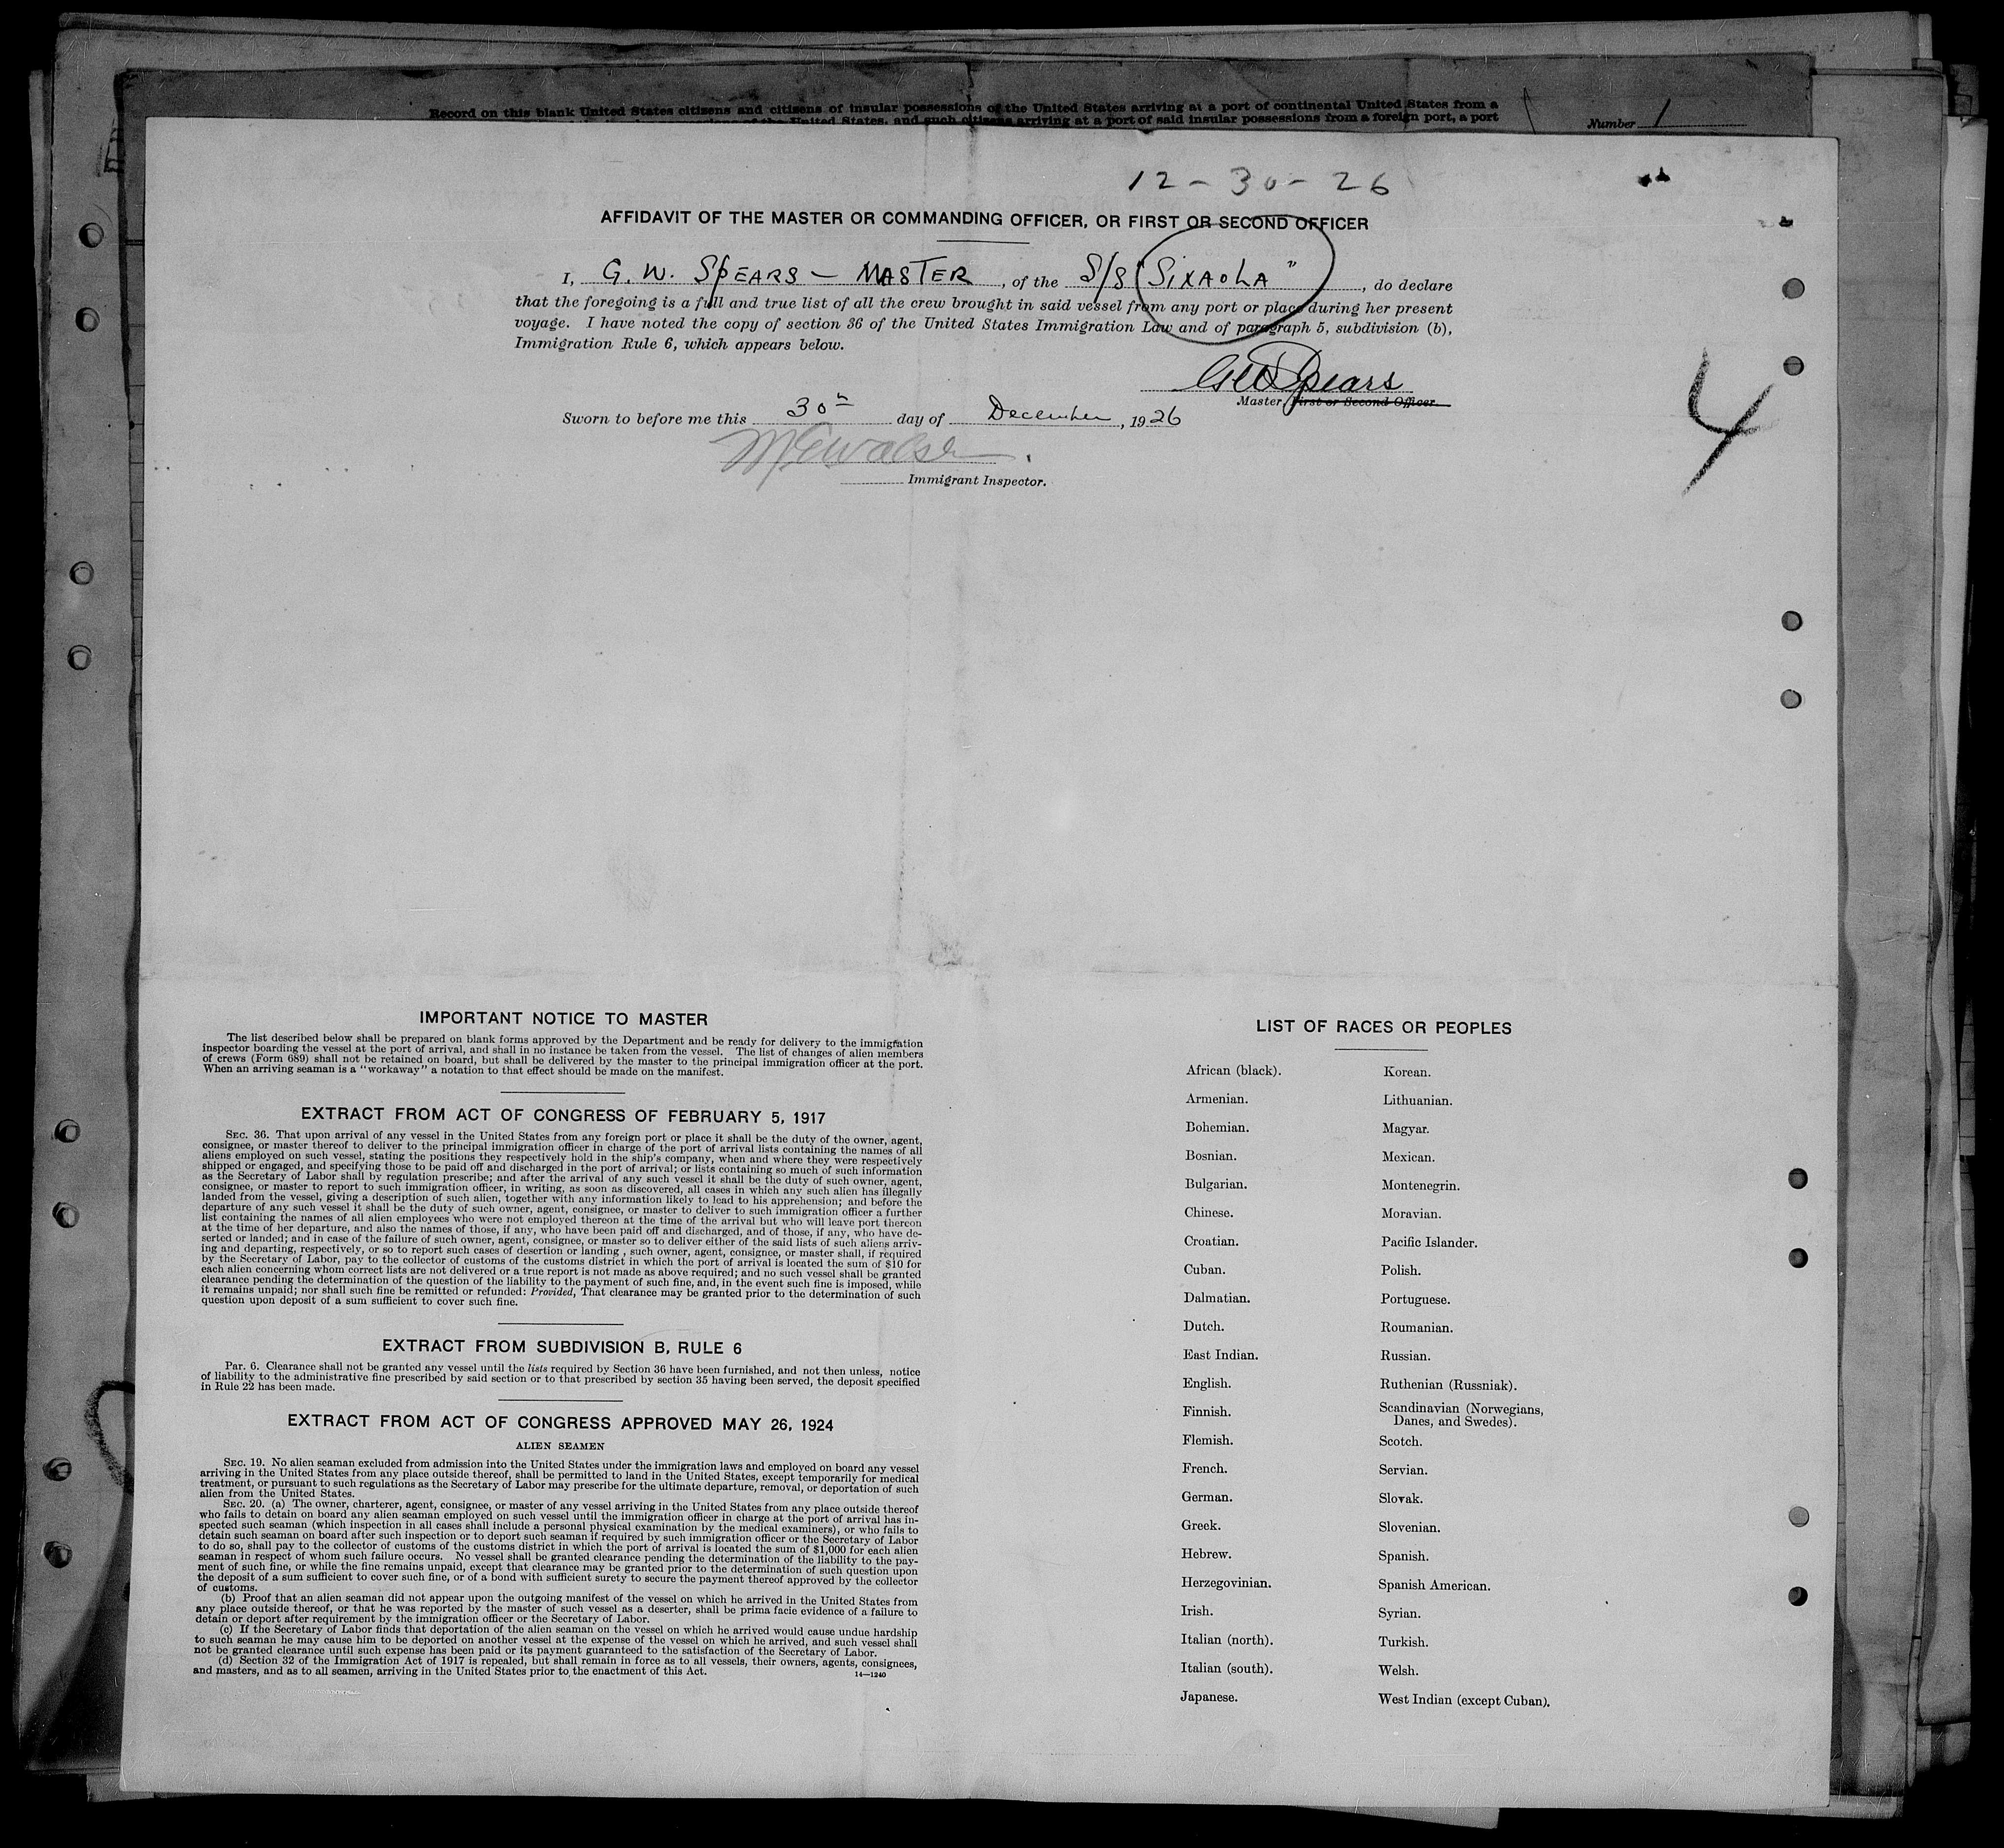 Record on this blank United States citizens and citizens of insular possessions of the United States arriving at a port of continental United States from a
United States, and such citizens arriving at a port of said insular possessions from a foreign port, a port
Number 1
12-30-26
AFFIDAVIT OF THE MASTER OR COMMANDING OFFICER, OR FIRST OR SECOND OFFICER
I, G. W. SPEARS – MASTER, of the S/S "SIXAOLA", do declare
that the foregoing is a full and true list of all the crew brought in said vessel from any port or place during her present
voyage. I have noted the copy of section 36 of the United States Immigration Law and of paragraph 5, subdivision (b),
Immigration Rule 6, which appears below.
GW Spears
Master, First or Second Officer.
4
Sworn to before me this 30th day of December, 1926
Immigrant Inspector.
IMPORTANT NOTICE TO MASTER
The list described below shall be prepared on blank forms approved by the Department and be ready for delivery to the immigration
inspector boarding the vessel at the port of arrival, and shall in no instance be taken from the vessel. The list of changes of alien members
of crews (Form 689) shall not be retained on board, but shall be delivered by the master to the principal immigration officer at the port.
When an arriving seaman is a "workaway" a notation to that effect should be made on the manifest.
EXTRACT FROM ACT OF CONGRESS OF FEBRUARY 5, 1917
SEC. 36. That upon arrival of any vessel in the United States from any foreign port or place it shall be the duty of the owner, agent,
consignee, or master thereof to deliver to the principal immigration officer in charge of the port of arrival lists containing the names of all
aliens employed on such vessel, stating the positions they respectively hold in the ship's company, when and where they were respectively
shipped or engaged, and specifying those to be paid off and discharged in the port of arrival; or lists containing so much of such information
as the Secretary of Labor shall by regulation prescribe; and after the arrival of any such vessel it shall be the duty of such owner, agent,
consignee, or master to report to such immigration officer, in writing, as soon as discovered, all cases in which any such alien has illegally
landed from the vessel, giving a description of such alien, together with any information likely to lead to his apprehension; and before the
departure of any such vessel it shall be the duty of such owner, agent, consignee, or master to deliver to such immigration officer a further
list containing the names of all alien employees who were not employed thereon at the time of the arrival but who will leave port thereon
at the time of her departure, and also the names of those, if any, who have been paid off and discharged, and of those, if any, who have de-
serted or landed; and in case of the failure of such owner, agent, consignee, or master so to deliver either of the said lists of such aliens arriv-
ing and departing, respectively, or so to report such cases of desertion or landing , such owner, agent, consignee, or master shall, if required
by the Secretary of Labor, pay to the collector of customs of the customs district in which the port of arrival is located the sum of $10 for
each alien concerning whom correct lists are not delivered or a true report is not made as above required; and no such vessel shall be granted
clearance pending the determination of the question of the liability to the payment of such fine, and, in the event such fine is imposed, while
it remains unpaid; nor shall such fine be remitted or refunded: Provided, That clearance may be granted prior to the determination of such
question upon deposit of a sum sufficient to cover such fine.
EXTRACT FROM SUBDIVISION B, RULE 6
Par. 6. Clearance shall not be granted any vessel until the lists required by Section 36 have been furnished, and not then unless, notice
of liability to the administrative fine prescribed by said section or to that prescribed by section 35 having been served, the deposit specified
in Rule 22 has been made.
EXTRACT FROM ACT OF CONGRESS APPROVED MAY 26, 1924
ALIEN SEAMEN
SEC. 19. No alien seaman excluded from admission into the United States under the immigration laws and employed on board any vessel
arriving in the United States from any place outside thereof, shall be permitted to land in the United States, except temporarily for medical
treatment, or pursuant to such regulations as the Secretary of Labor may prescribe for the ultimate departure, removal, or deportation of such
alien from the United States.
SEC. 20. (a) The owner, charterer, agent, consignee, or master of any vessel arriving in the United States from any place outside thereof
who fails to detain on board any alien seaman employed on such vessel until the immigration officer in charge at the port of arrival has in-
spected such seaman (which inspection in all cases shall include a personal physical examination by the medical examiners), or who fails to
detain such seaman on board after such inspection or to deport such seaman if required by such immigration officer or the Secretary of Labor
to do so, shall pay to the collector of customs of the customs district in which the port of arrival is located the sum of $1,000 for each alien
seaman in respect of whom such failure occurs. No vessel shall be granted clearance pending the determination of the liability to the pay-
ment of such fine, or while the fine remains unpaid, except that clearance may be granted prior to the determination of such question upon
the deposit of a sum sufficient to cover such fine, or of a bond with sufficient surety to secure the payment thereof approved by the collector
of customs.
(b) Proof that an alien seaman did not appear upon the outgoing manifest of the vessel on which he arrived in the United States from
any place outside thereof, or that he was reported by the master of such vessel as a deserter, shall be prima facie evidence of a failure to
detain or deport after requirement by the immigration officer or the Secretary of Labor.
(c) If the Secretary of Labor finds that deportation of the alien seaman on the vessel on which he arrived would cause undue hardship
to such seaman he may cause him to be deported on another vessel at the expense of the vessel on which he arrived, and such vessel shall
not be granted clearance until such expense has been paid or its payment guaranteed to the satisfaction of the Secretary of Labor.
(d) Section 32 of the Immigration Act of 1917 is repealed, but shall remain in force as to all vessels, their owners, agents, consignees,
and masters, and as to all seamen, arriving in the United States prior to the enactment of this Act.
14—1240
LIST OF RACES OR PEOPLES
African (black). Korean.
Armenian. Lithuanian.
Bohemian. Magyar.
Bosnian. Mexican.
Bulgarian. Montenegrin.
Chinese. Moravian.
Croatian. Pacific Islander.
Cuban. Polish.
Dalmatian. Portuguese.
Dutch. Roumanian.
East Indian. Russian.
English. Ruthenian (Russniak).
Finnish. Scandinavian (Norwegians,
Danes, and Swedes).
Flemish. Scotch.
French. Servian.
German. Slovak.
Greek. Slovenian.
Hebrew. Spanish.
Herzegovinian. Spanish American.
Irish. Syrian.
Italian (north). Turkish.
Italian (south). Welsh.
Japanese. West Indian (except Cuban).